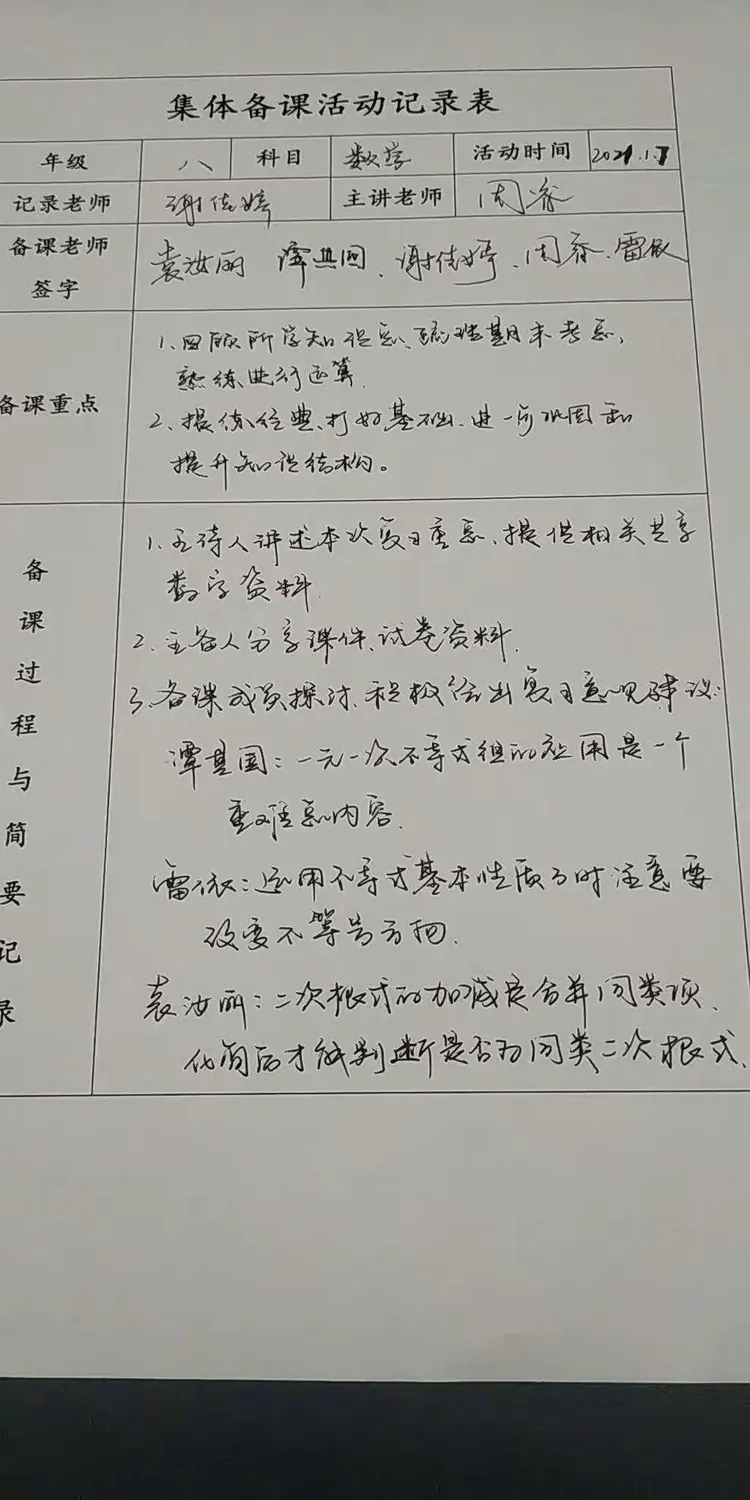 集体备课活动记录表
年级 八 科目 数学 活动时间 2021.1.7
记录老师 谢佳婷 主讲老师 周
备课老师 签字 袁汝丽 谭其国、谢佳婷、周、雷
备课重点
1、回顾所学知识点、梳理期末考点,
熟练进行运算.
2、提练经典、打好基础、进一步巩固和
提升知识结构。
备课过程与简要记录
1、主持人讲述本次复习重点、提供相关共享
数字资料.
2、主备人分享课件、试卷资料.
3、备课成员探讨、积极给出复习意见建议:
谭其国:一元一次不等式组的应用是一个
重难点内容.
雷:运用不等式基本性质3时注意要
改变不等号方向.
袁汝丽:二次根式的加减是合并同类项、
化简后才能判断是否为同类二次根式.